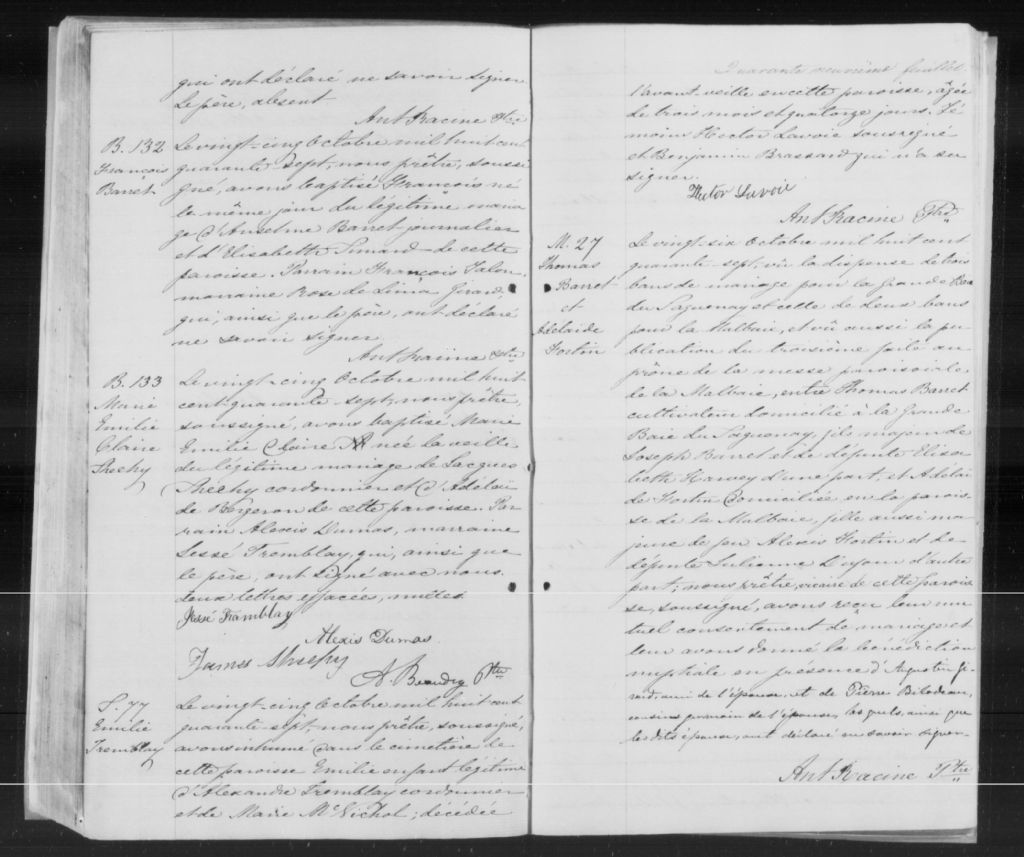 qui ont déclaré ne savoir signer
Le père, absent
Ant Racine Ptre
B. 132
François
Barret
Le vingt-cinq Octobre mil huit cent
quarante sept, nous prêtre, soussi
gné, avons baptisé François né
le même jour du légitime maria
ge d'Anselme Barret journalier
et d'Elisabeth Simard de cette
paroisse. Parrain François Jalon
marraine Rose de Lima Girard,
qui, ainsi que le père, ont déclaré
ne savoir signer
Ant Racine Ptre
B. 133
Marie
Emilie
Claire
Shechy
Le vingt-cinq Octobre mil huit
cent quarante sept, nous prêtre,
soussigné, avons baptisé Marie
Emilie Claire née la veille
du légitime mariage de Jacques
Shechy cordonnier et d'Adélaï
de Bergeron de cette paroisse. Par
rain Alexis Dumas, marraine
Jessé Tremblay, qui, ainsi que
le père, ont signé avec nous.
deux lettres effacées, nulles
Jessé Tramblay
Alexis Dumas
James Shechy
A. Beaudry Ptre
S. 77
Emilie
Tremblay
Le vingt-cinq Octobre mil huit cent
quarante sept, nous prêtre, soussigné,
avons inhumé dans le cimetière de
cette paroisse Emilie enfant légitime
d'Alexandre Tremblay cordonnier
et de Marie McNichol, décédée
Quarante neuvième feuillet.
l'avant veille en cette paroisse, âgée
de trois mois et quatorze jours. Té
moins Hector Lavoie soussigné
et Benjamin Brassard qui n'a su
signer.
Hector Lavoie
Ant Racine Ptre
M. 27
Thomas
Barret
et
Adelaide
Fortin
Le vingt-six Octobre mil huit cent
quarante-sept, vû la dispense de trois
bans de mariage pour la Grande Baie
du Saguenay et cette de deux bans
pour la Malbaie, et vû aussi la pu
blication du troisième faite au
prône de la messe paroissiale
de la Malbaie, entre Thomas Barret
cultivateur domicilié à la Grande
Baie du Saguenay, fils majeur de
Joseph Barret et de défunte Elisa
beth Harvey d'une part, et Adélaï
de Fortin domiciliée en la parois
se de la Malbaie, fille aussi ma
jeure de feu Alexis Fortin et de
défunte Julienne d'autre
part; nous prêtre, vicaire de cette parois
se, soussigné, avons reçu leur mu
tuel consentement de mariage et
leur avons donné la bénédiction
nuptiale en présence d'Augustin Gi-
rard, ami de l'époux, et de Pierre Bilodeau,
cousin germain de l'épouse, lesquels, ainsi que
les dits époux, ont déclaré ne savoir signer.
Ant Racine Ptre